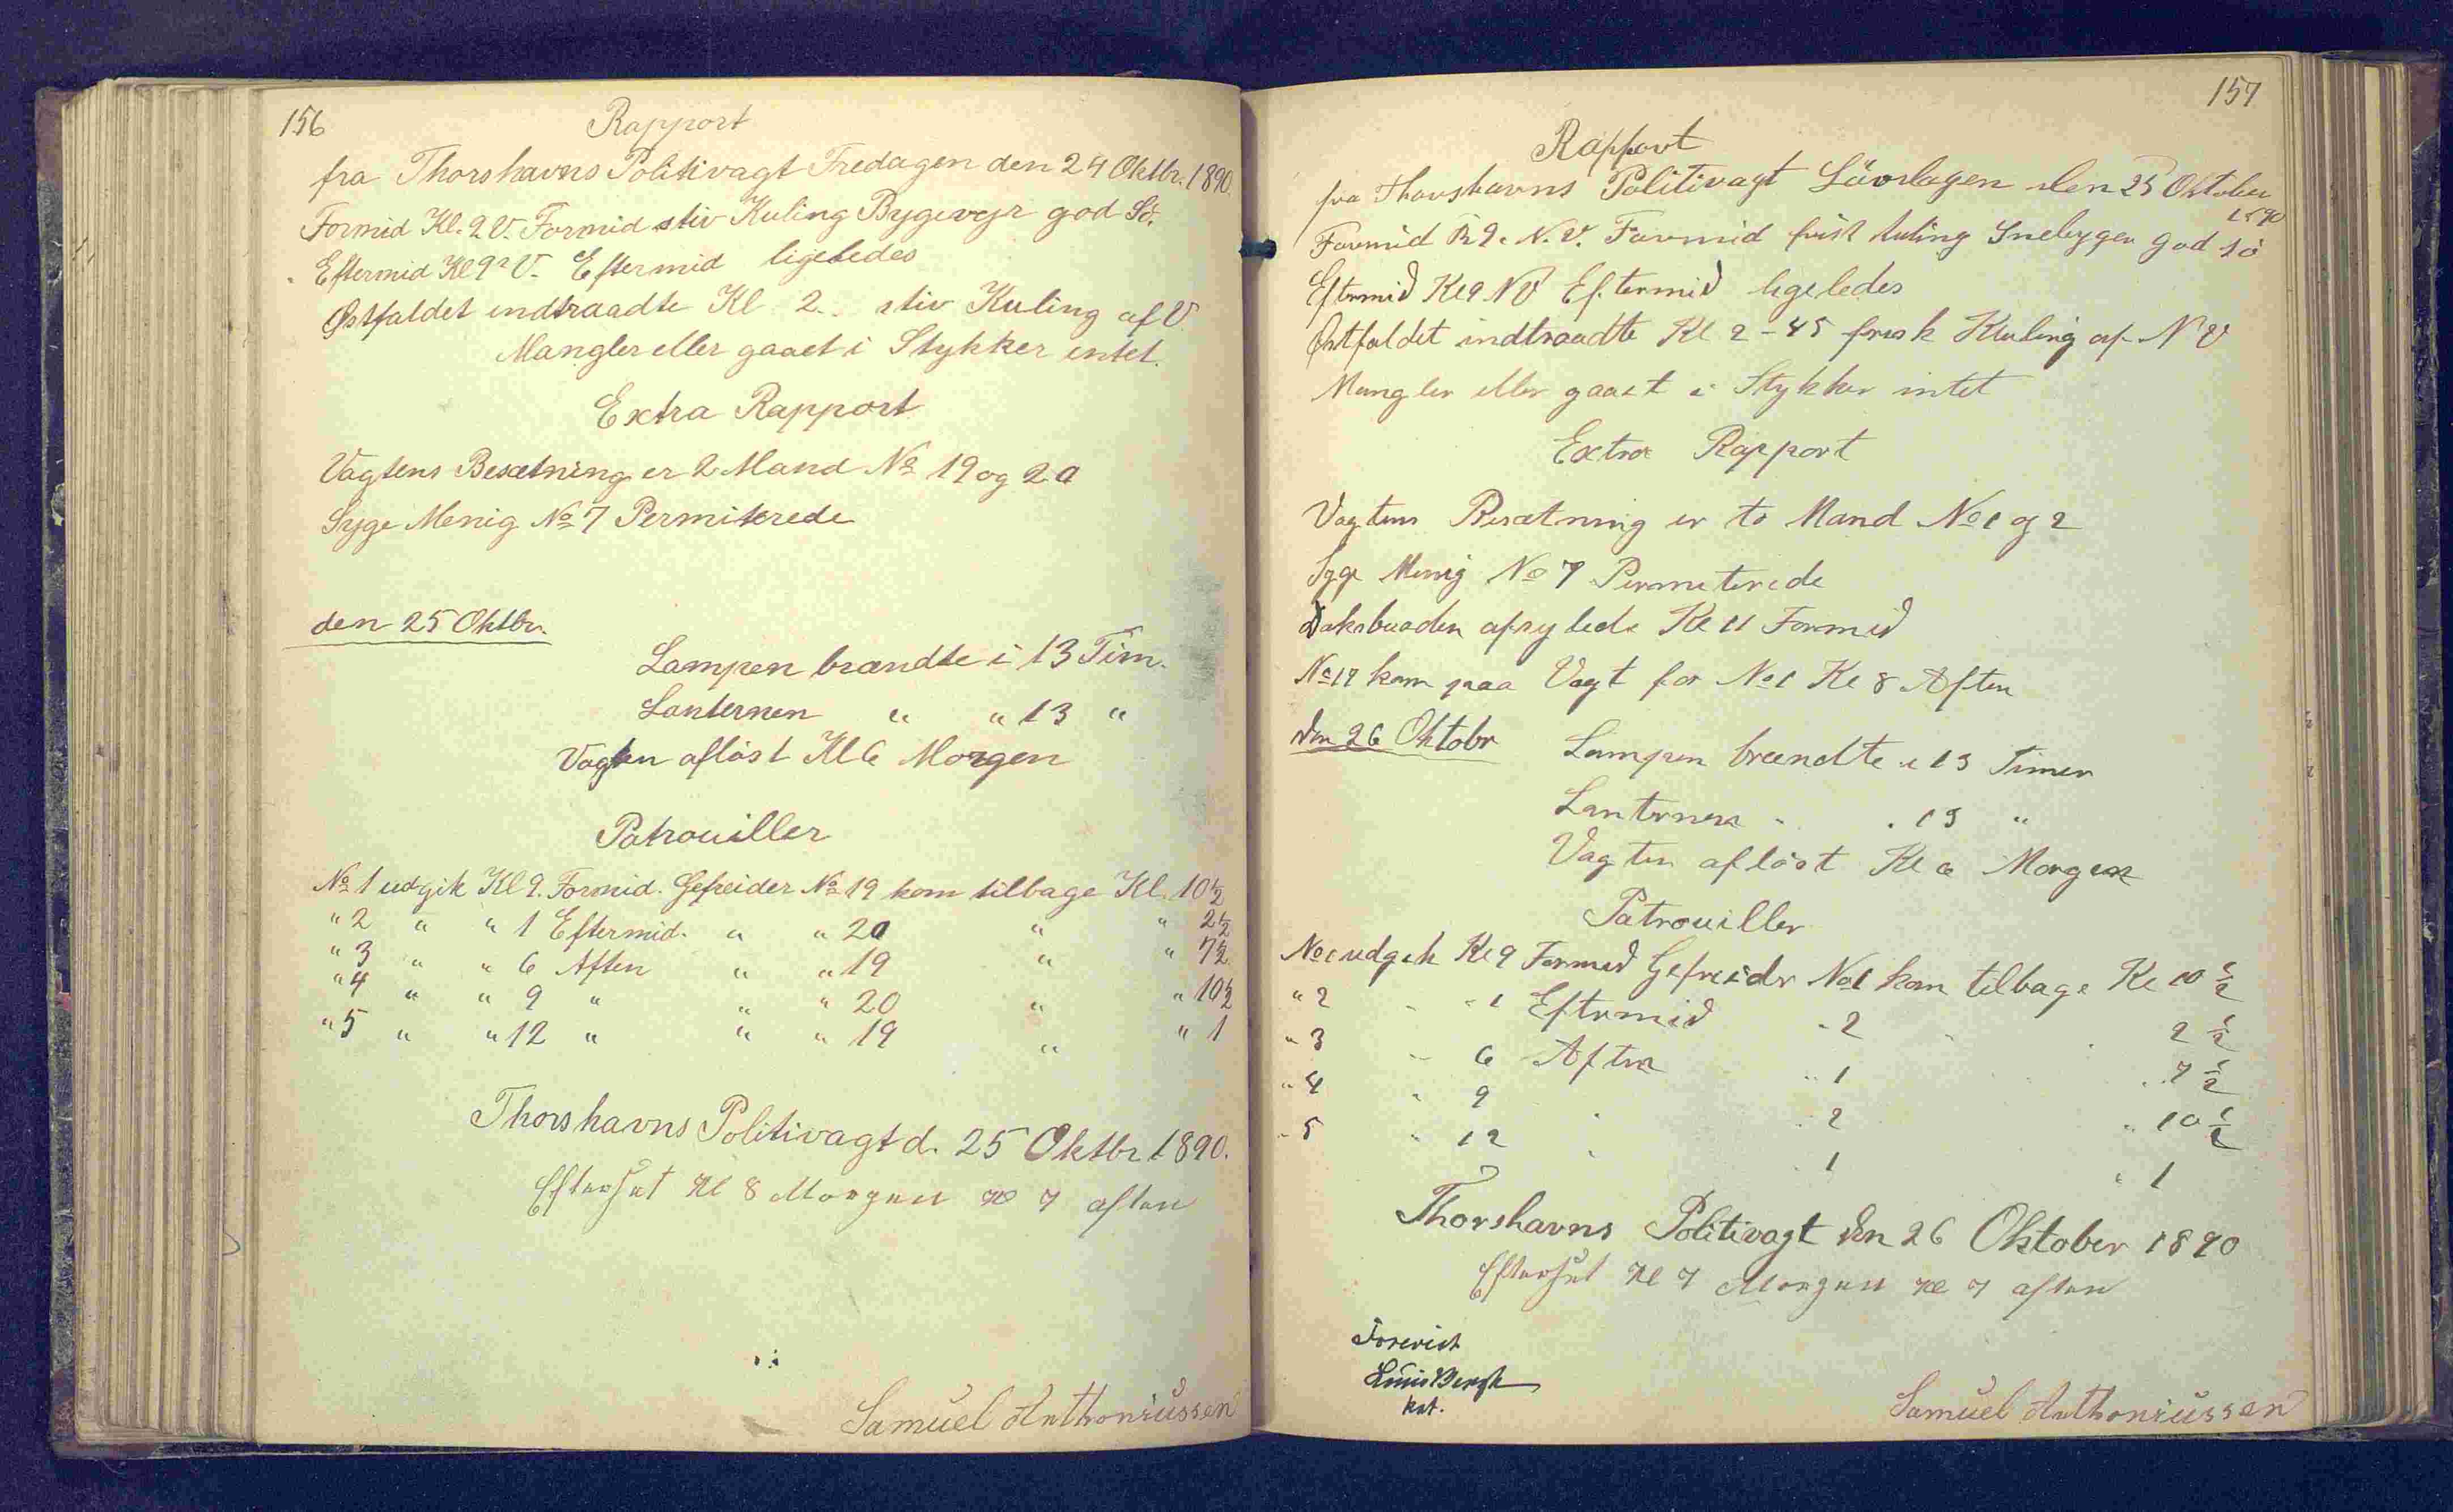 156
Rapport
fra Thorshavns Politivagt Fredagen den 24 Oktbr. 1890.
Formid Kl. 9 V. Formid stiv Kuling Bygevejr god Sö.
Eftermid Kl 9 V. Eftermid ligeledes
Østfaldet indtraadte Kl 2 .. stiv Kuling af V.
Mangler eller gaaet i Stykker intet.
Extra Rapport
Vagtens Besætning er 2 Mand No 19 og 20
Syge Menig No 7 Permiterede
den 25 Oktbr.
Lampen brændte i 13 Tim.
Lanternen " " 13 "
Vagten aflöst Kl 6 Morgen
Patrouiller
No 1 udgik Kl 9. Formid. Gefreider No 19 kom tilbage Kl. 10½
" 2 " " 1 Eftermid. " " 20 " " 2½
" 3 " " 6 Aften " " 19 " " 7½
" 4 " " 9 " " " 20 " " 10½
" 5 " " 12 " " " 19 " " 1
Thorshavns Politivagt d. 25 Oktbr 1890.
Efterset Kl 8 Morgen Kl 7 aften
Samuel Anthoniussen
157
Rapport
fra Thorshavns Politivagt Löverdagen den 25 Oktober
1890
Formid Kl 9. N.V. Formid frisk Kuling Snebyger god Sö
Eftermid Kl 9 NV Eftermid ligeledes
Østfaldet indtraadte Kl 2-45 frisk Kuling af NV
Mangler eller gaaet i Stykker intet
Extra Rapport
Vagtens Besætning er to Mand No 1 og 2
Syge Menig No 7 Permiterede
afsylede Kl 11 Formid
No 19 kom paa Vagt for No 1 Kl 8 Aften
den 26 Oktobr
Lampen brændte i 13 Timer
Lanternen " . 13 "
Vagten aflöst Kl 6 Morgen
Patrouiller
No 1 udgik Kl 9 Formid Gefreider No 1 kom tilbage Kl 10½
" 2 " " 1 Eftermid " 2 " " 2½
" 3 " 6 Aften " 1 " 7½
" 4 " 9 " " 2 " 10½
" 5 " 12 " " 1 " 1
Thorshavns Politivagt den 26 Oktober 1890
Efterset Kl 7 Morgen Kl 7 aften
Forevist
Louis Bergh
kst.
Samuel Anthoniussen